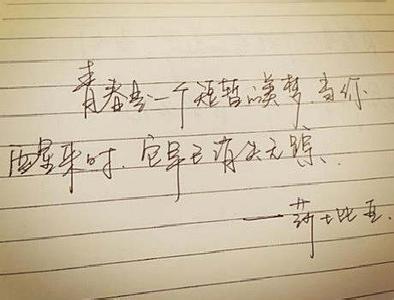 青春是一个短暂的美梦,当你
醒来时,它早已消失无踪。
——莎士比亚.